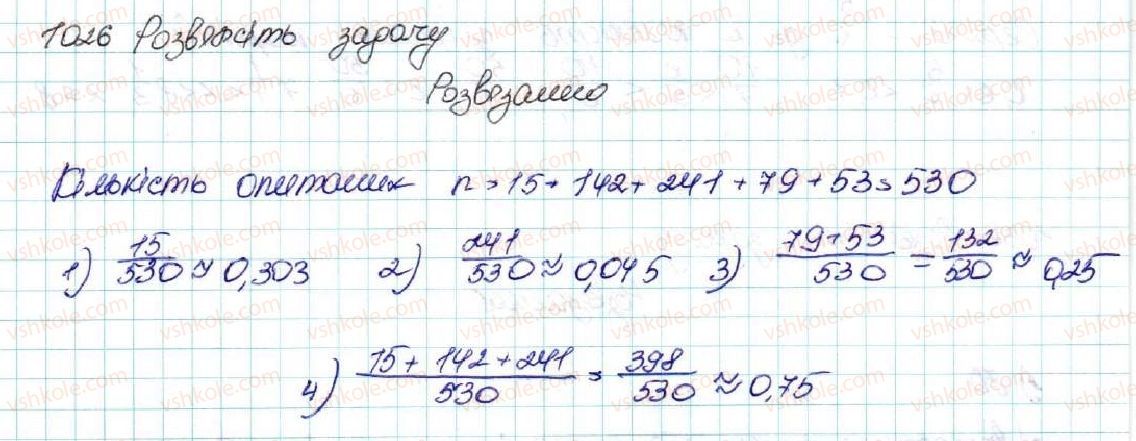 1026 Розвяжіть задачу
Розвязання
Кількість опитаних n = 15 + 142 + 241 + 79 + 53 = 530
1) 15/530 ≈ 0,303 2) 241/530 ≈ 0,045 3) 79+53/530 = 132/530 ≈ 0,25
4) 15 + 142 + 241/530 = 398/530 ≈ 0,75